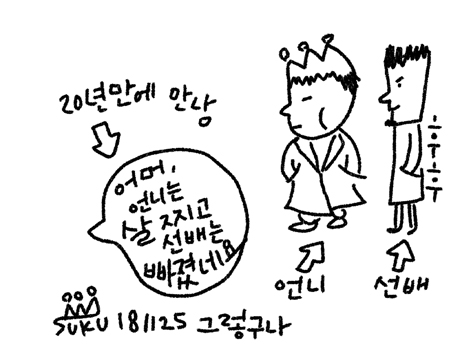 20년만에 만남
어머,
언니는
살 찌고
선배는
빠졌네!!
후후
언니
선배
SUKU 181125 그렇구나